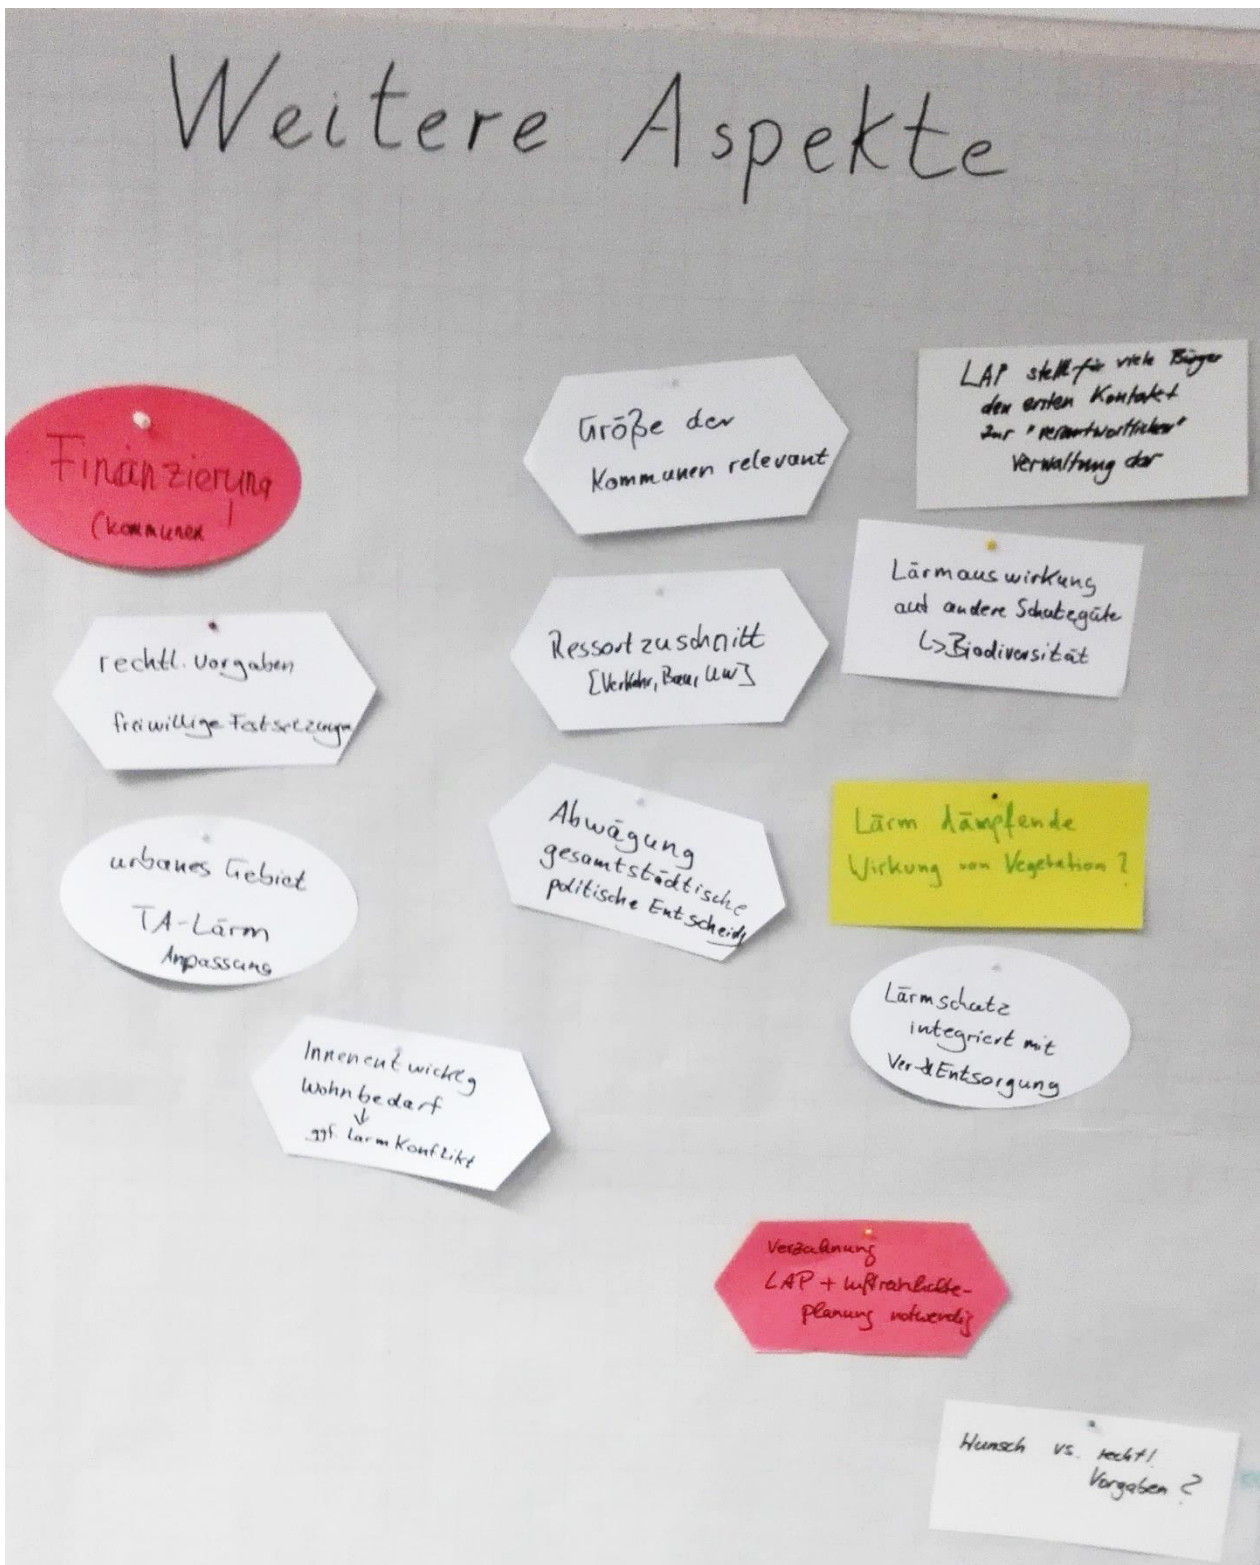 Weitere Aspekte
Finanzierung
(Kommunen)
rechtl. Vorgaben
freiwillige Festsetzungen
urbanes Gebiet
TA-Lärm
Anpassung
Innenentwicklg
Wohnbedarf
↓
ggf. Lärmkonflikt
Größe der
Kommunen relevant
Ressortzuschnitt
[Verkehr, Bau, UW]
Abwägung
gesamtstädtische
politische Entscheidg
LAP stellt für viele Bürger
den ersten Kontakt
zur "verantwortlichen"
Verwaltung dar
Lärmauswirkung
auf andere Schutzgüte
↳ Biodiversität
Lärm dämpfende
Wirkung von Vegetation?
Lärmschutz
integriert mit
Ver-&Entsorgung
Verzahnung
LAP + Luftreinhalte-
planung notwendig
Wunsch vs. rechtl.
Vorgaben?